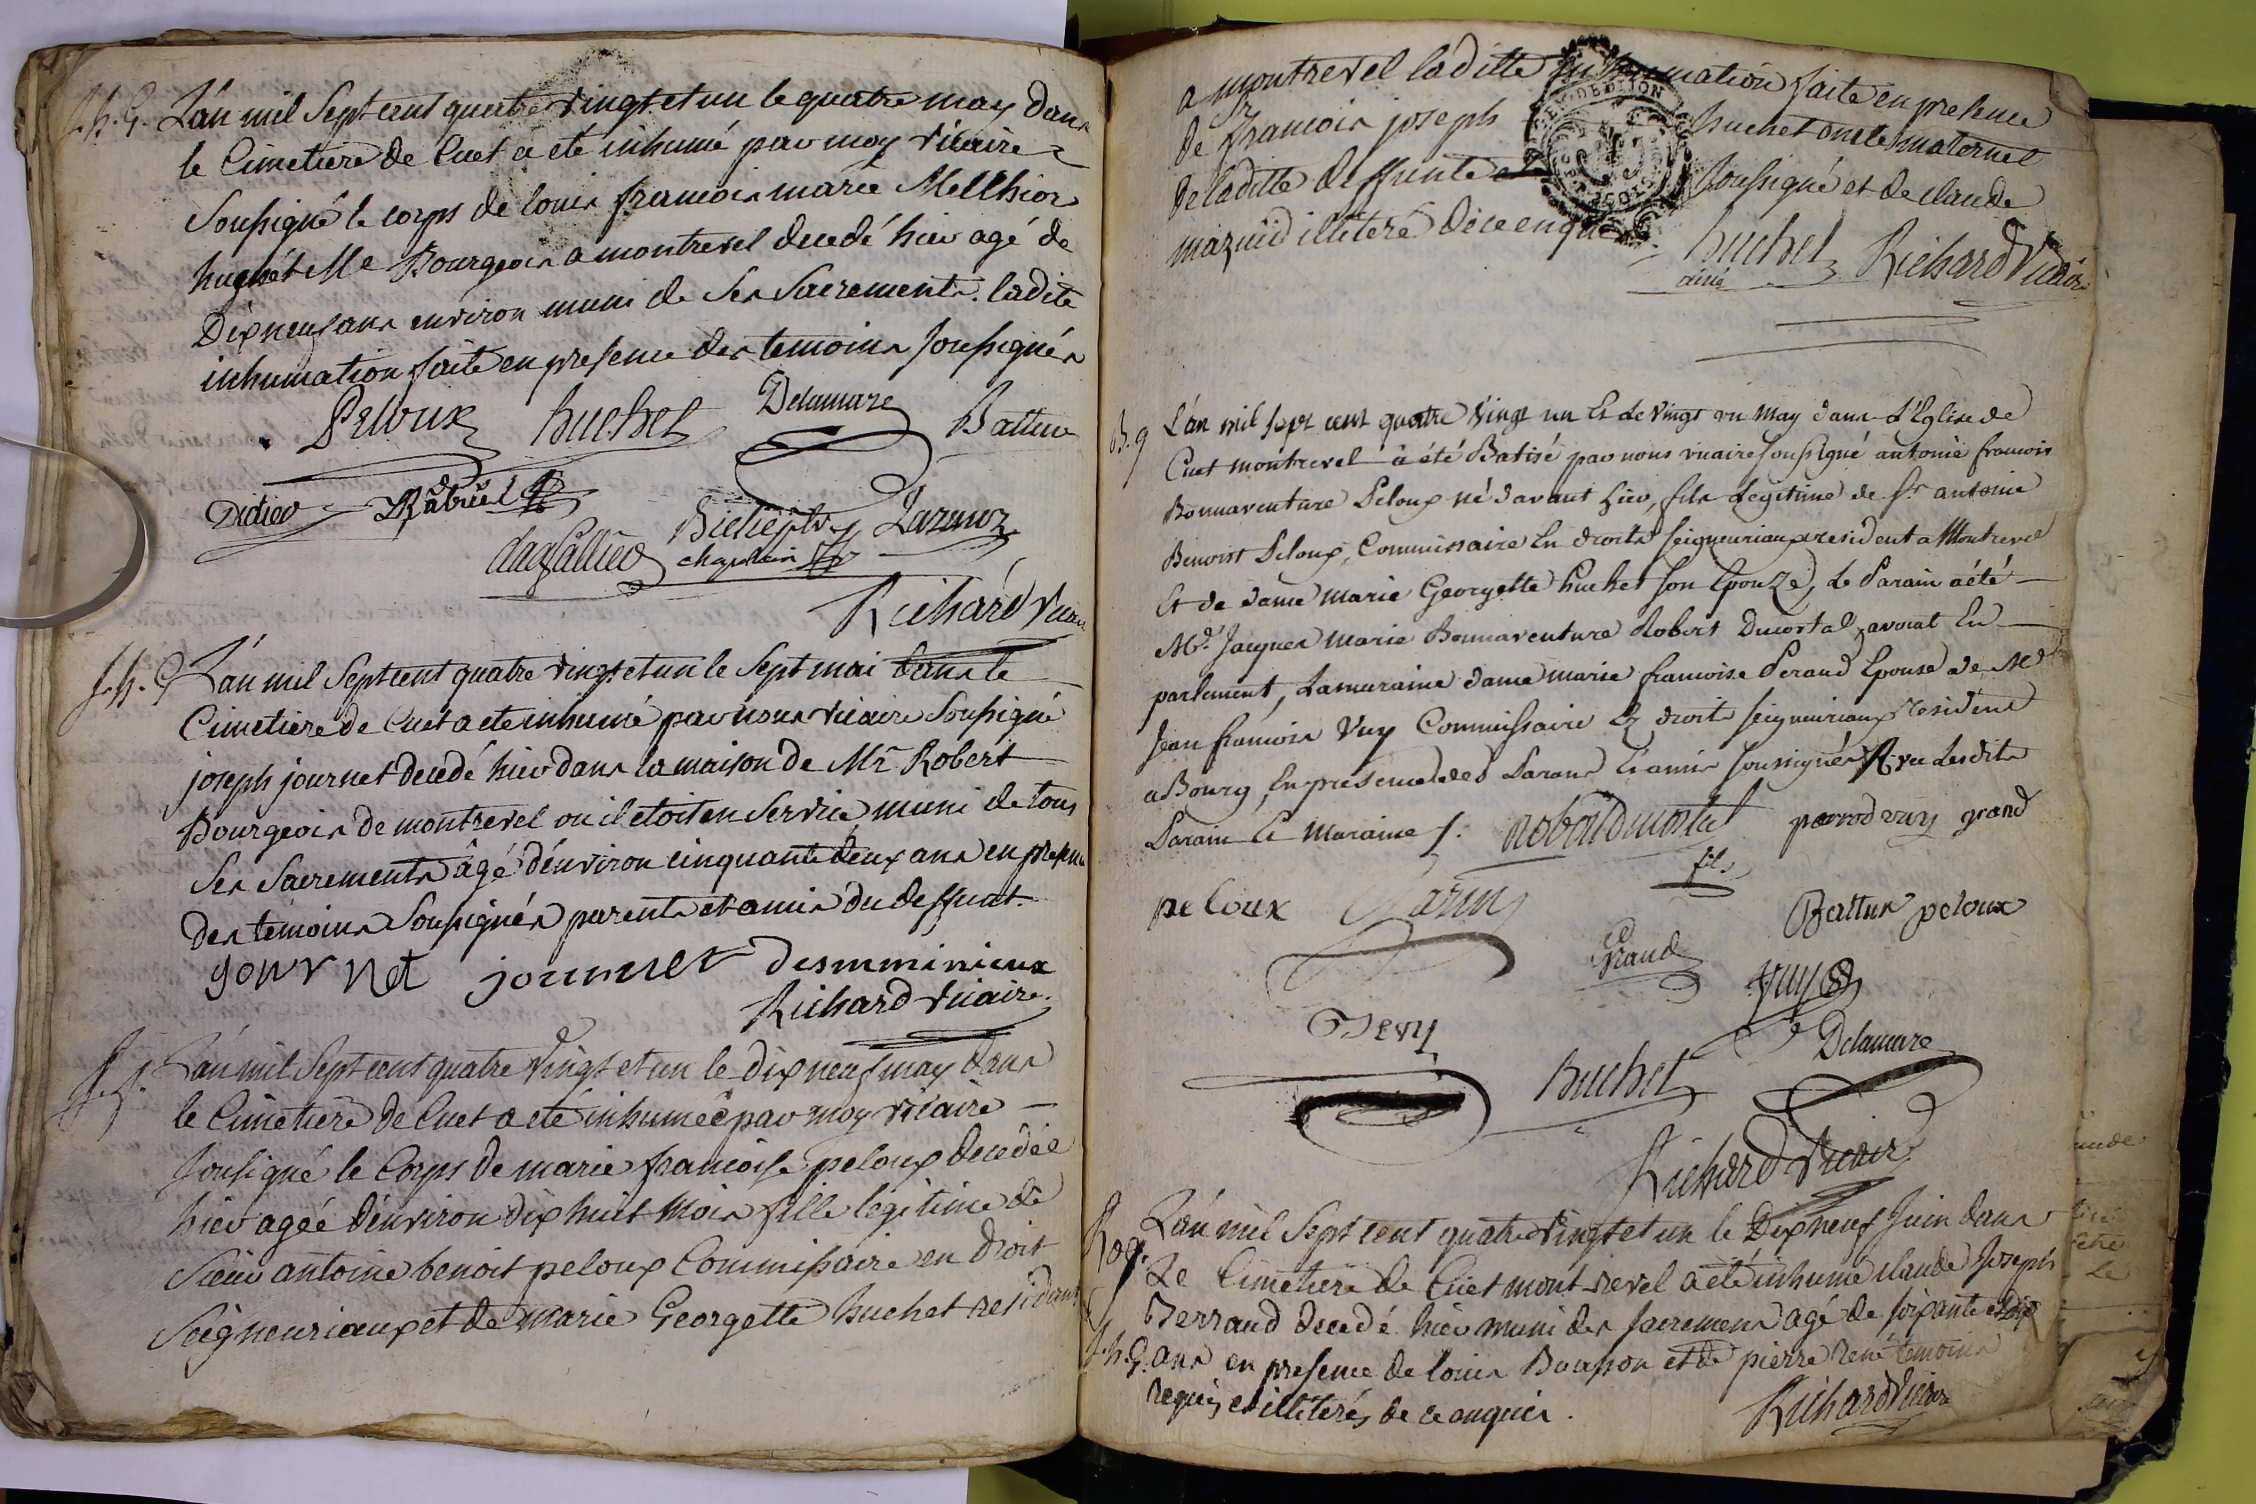 J. h. G. L'an mil Sept cent quatre vingt et un le quatre may dans
le Cimetiere de Cuet a eté inhumé par moy vicaire
Soussigné le corps de louis francois marie Melchior
huchet Me Bourgeois a montrevel decedé hier agé de
Dix neuf ans environ muni de Ses Sacrements. ladite
inhumation faite en presence des temoins soussignés
Peloux huchet Delamare Battur
Didier Rabuel
dagallier chapelain
Richard Vicaire
J. h. G. L'an mil Sept cent quatre vingt et un le Sept mai dans le
Cimetiere de Cuet a ete inhumé par nous vicaire Soussigné
joseph journet decedé hier dans la maison de Mr Robert
Bourgeois de montrevel ou il etoit en Service muni de tous
Ses Sacrements âgé d'environ cinquante deux ans en presence
des temoins Soussignés parents et amis du deffunt.
gour net journet desmminieux
Richard Vicaire
L'an mil Sept cent quatre vingt et un le dix neuf may dans
le Cimetiere de Cuet a eté inhumée par moy vicaire
Sousigné le Corps de marie francoise peloux decedée
hier agée d'environ dix huit mois fille legitime de
Sieur antoine benoit peloux Commissaire en droit
Seigneuriaux et de marie Georgette huchet residants
a montrevel laditte inhumation faite en presence
de Sr francois joseph huchet oncle maternel
de laditte deffunte soussigné et de claude
mazuid illiteré de ce enquis
huchet Richard Vicaire
ainé
B. g L'an mil sept cent quatre vingt un Et le vingt un May dans L'Eglise de
Cuet montrevel à été Batisé par nous vicaire soussigné antoine francois
Bonnaventure Peloux né d'avant hier, fils Legitime de sr antoine
Benoist Peloux, Commissaire En droits seigneuriaux resident a Montrevel
Et de dame Marie Georgette huchet son Epouze, Le Parain a été
Mr Jacques Marie Bonnaventure Robert Ducortal, avocat En
parlement, La maraine dame marie francoise Peraud Epouse de Mr
Jean francois Vuy Commissaire Ez droits seigneuriaux resident
a Bourg, En presence des Parans Et amis soussignés avec Lesdits
Parain Et Maraine /. perrod vuy grand
fils
peloux Garin Battur peloux
Grand
Vuy
Devy
huchet Delamare
Richard Vicaire
L'an mil Sept cent quatre vingt et un le Dix neuf Juin dans
Le Cimetiere de Cuet mont-revel a eté inhumé claude Joseph
Ferrand decedé hier muni des sacremens agé de soixante et dix
J. h. G. ans en presence de louis Bourson et de pierre rené temoins
requis et illiterés de ce enquis.
Richard Vicaire